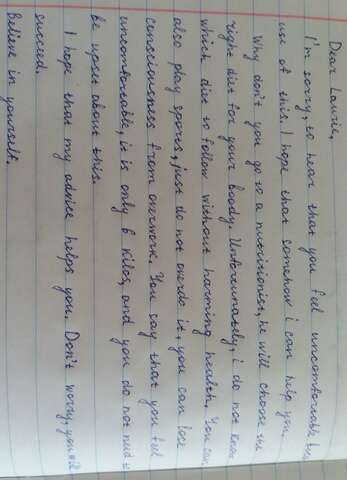 Dear Laurie,
I'm sorry, to hear that you feel uncomfortable
use of this. I hope that somehow i can help you.
Why don't you go to a nutritionist, he will choose the
right diet for your boody. Unfortunately, i do not know
which diet to follow without harming health. You can
also play sports, just do not overdo it, you can lose
consciousness from overwork. You say that you feel
uncomfortable, it is only 6 kilos, and you do not need to
be upset about this.
I hope that my advice helps you. Don't worry, you will
succeed.
Believe in yourself.